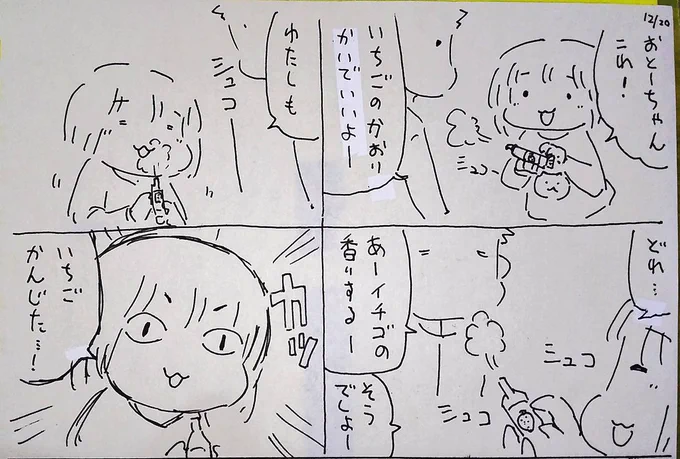 12/20
おとーちゃん
これ！
シュコ
いちごのかおり
かいでいいよー
どれ…
シュコ
シュコ
あーイチゴの
香りするー
そう
でしょー
わたしも
シュコー
カッ
いちご
かんじた…！